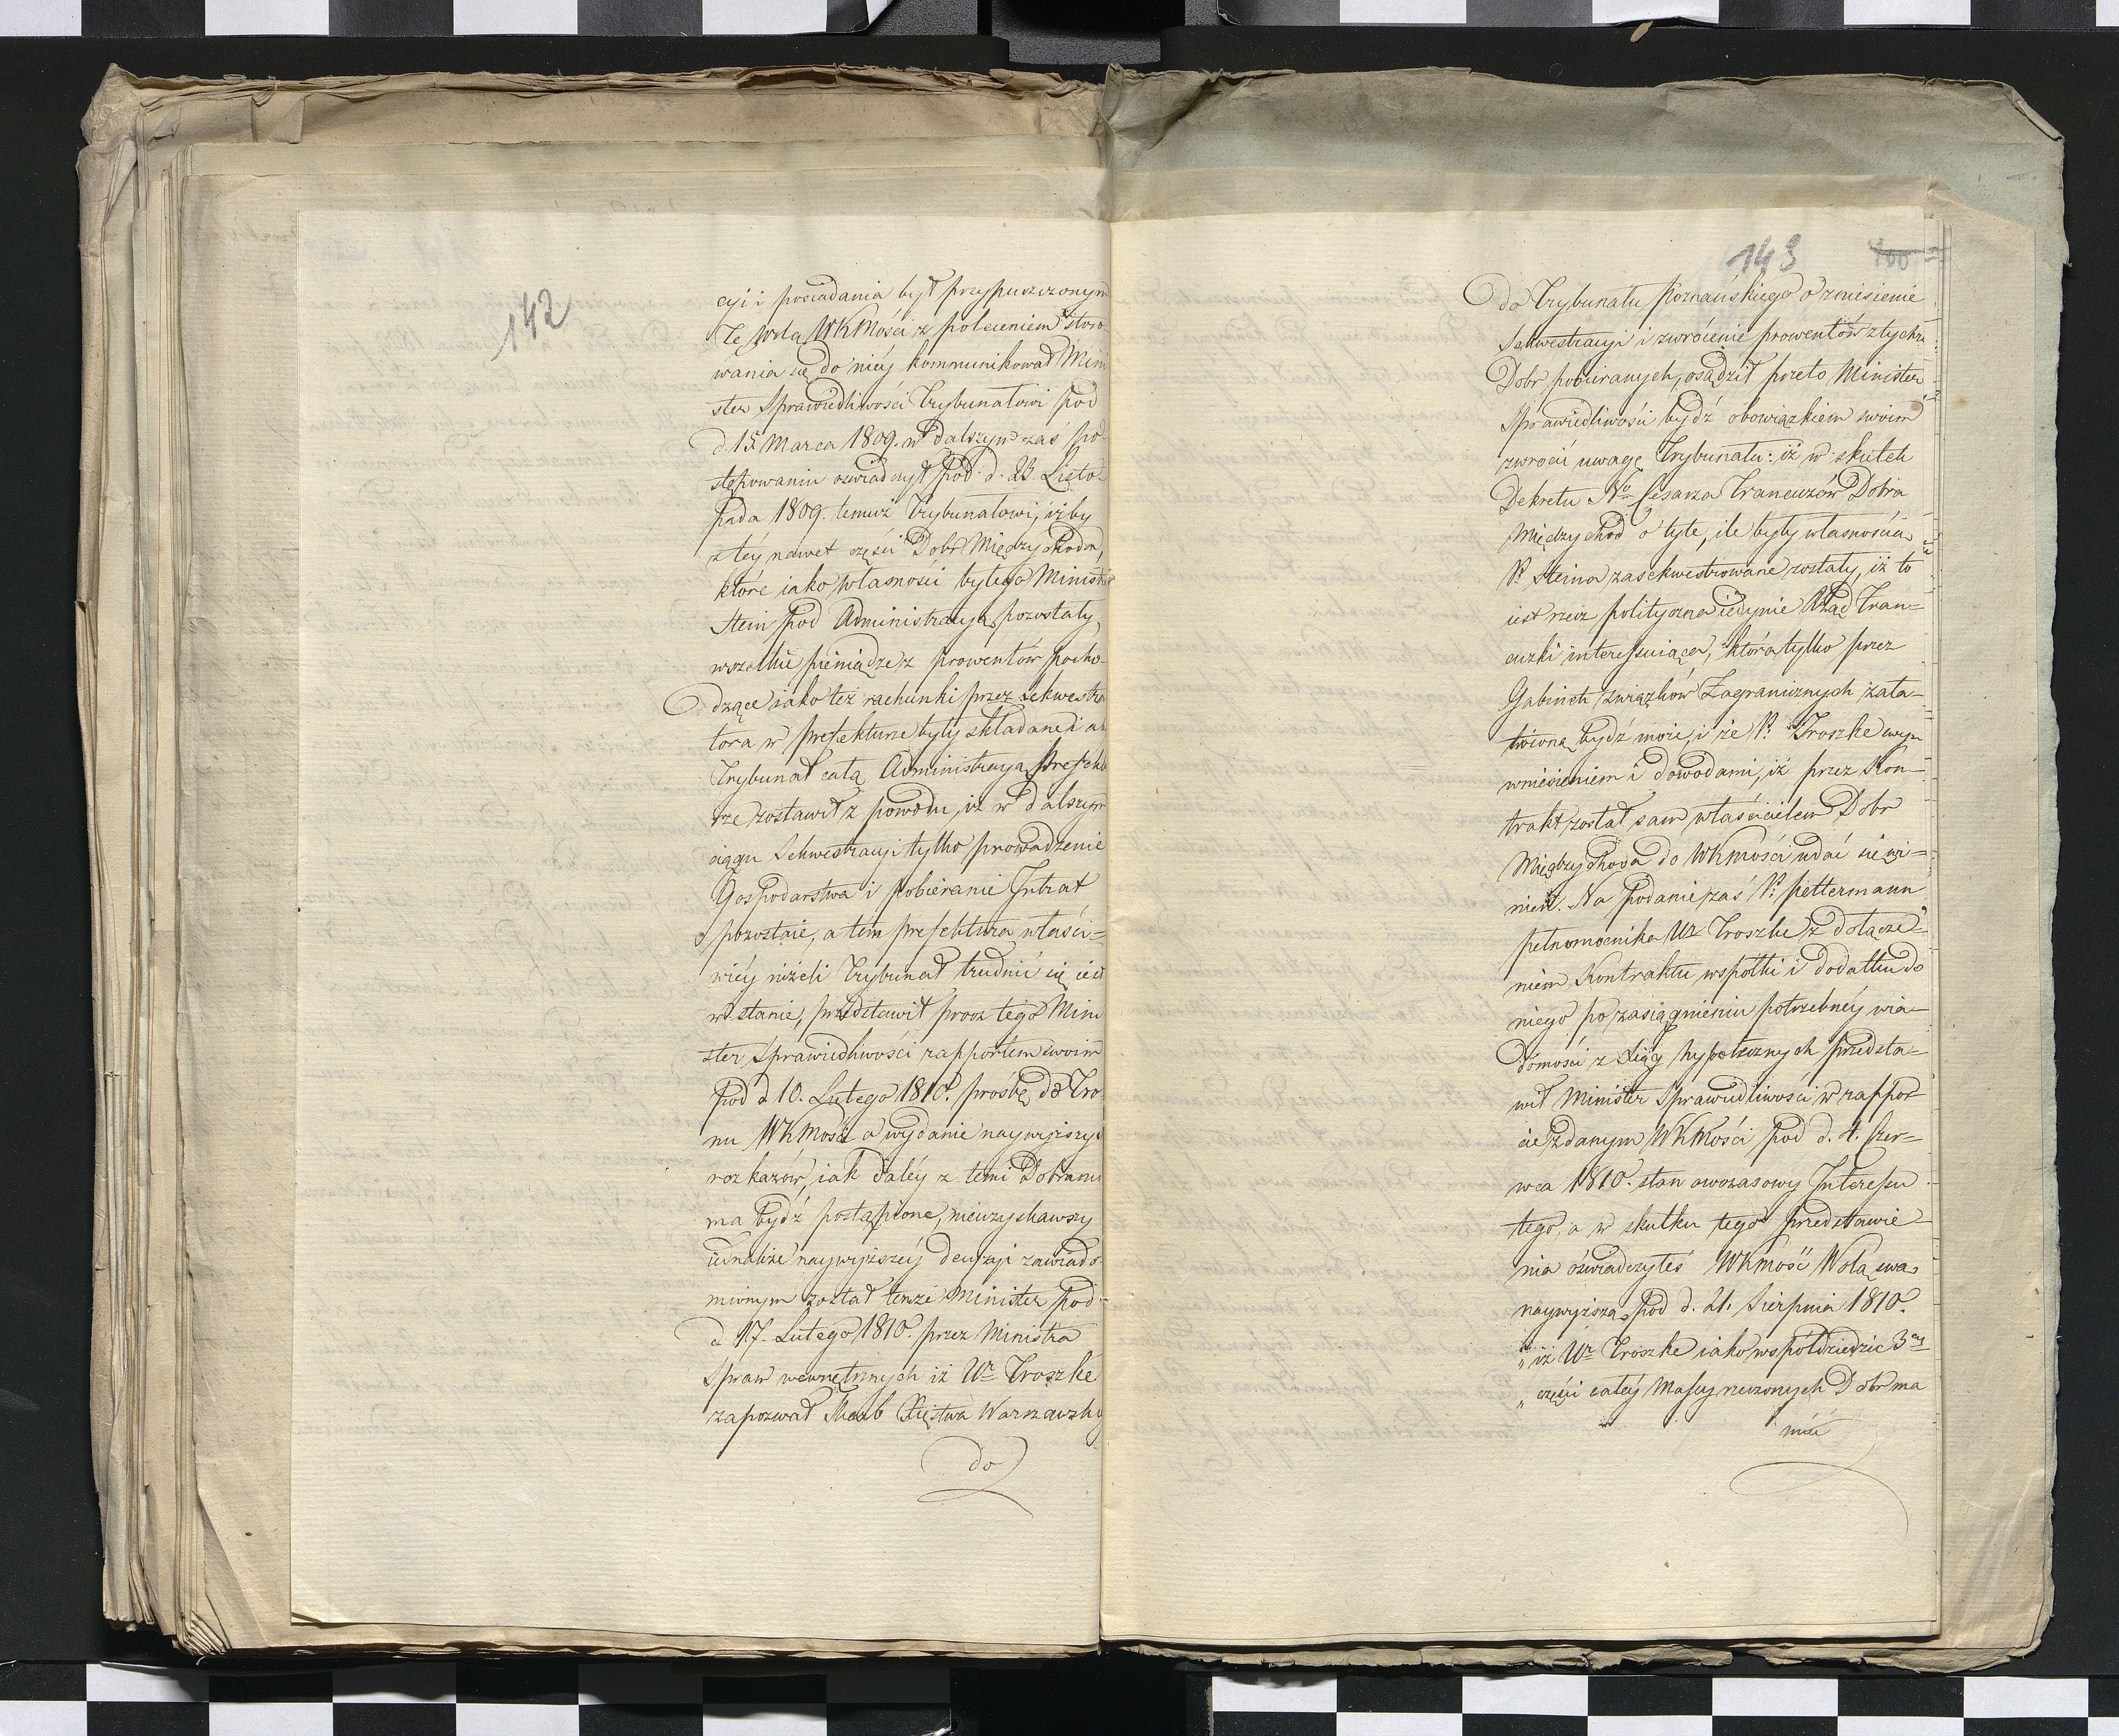 142
cyi i posiadania był przypuszczonym
Tę Wolą WKMości z poleceniem stoso-
wania się do niéy kommunikował Mini
ster Sprawiedliwości Trybunałowi pod
d. 15. Marca 1809. w dalszym zaś po-
stępowaniu oświadczył pod d. 23. Listo-
pada 1809. temuż Trybunałowi, iżby
z téy nawet części Dobr Międzychoda,
które iako własności byłego Ministra
Stein pod Administracyą pozostały,
wszelkie pieniądze z prowentów pocho-
dzące iako też rachunki przez Sekwestra
tora w Prefekturze były składane i aby
Trybunał całą Administracyą Prefektu
rze zostawił z powodu, iż w dalszym
ciągu Sekwestracyi tylko prowadzenie
Gospodarstwa i pobieranie Intrat
pozostaie, a tém Prefektura właści-
wiéy niżeli Trybunał trudnić się iest
w stanie, przedstawił procz tego Mini
ster Sprawiedliwości rapportem swoim
pod d 10. Lutego 1810. prosbę do Tro
nu WKMości o wydanie naywyższych
rozkazów, iak daléy z temi Dobrami
ma bydź postąpione, nieuzyskawszy
iednakże naywyższéy decyzyi zawiado-
mionym został tenże Minister pod
d 17. Lutego 1810. przez Ministra
Spraw wewnętrznych iż Ur. Troszke
zapozwał Skarb Xięstwa Warszawskie
do
143
100
do Trybunału Poznańskiego o zniesienie
Sekwestracyi i zwrócenie prowentów z tychże
Dobr pobieranych, osądził przeto Minister
Sprawiedliwości bydź obowiązkiem swoim
zwrócić uwagę Trybunału: iż w skutek
Dekretu No Cesarza Francuzów Dobra
Międzychod o tyle, ile były własnością
P. Steina zasekwestrowane zostały, iż to
iest rzecz polityczna iedynie Rząd Fran-
cuzki interessuiąca, która tylko przez
Gabinet związków Zagranicznych zała-
twioną bydź może, i że P. Troszke z tym
wniesieniem i dowodami, iż przez Kon-
trakt został sam właścicielem Dobr
Międzychoda do WKmości udać się wi-
nien. Na podanie zaś P. Pettermann
pełnomocnika Ur Troszke z dołącze-
niem Kontraktu współki i dodatku do
niego po zasiągnieniu potrzebnéy wia-
domości z Xiąg hypotecznych przedsta-
wił Minister Sprawiedliwości w rappor
cie zdanym WKMości pod d. 4. Czer-
wca 1810. stan owczasowy Interessu
tego, a w skutku tego przedstawie-
nia oświadczyłeś WKmość Wolą swą
naywyższą pod d. 21. Sierpnia 1810.
„ iż Ur. Troszke iako współdziedzic 3ey
„ części całéy Massy rzeczonych Dobr ma
mieć